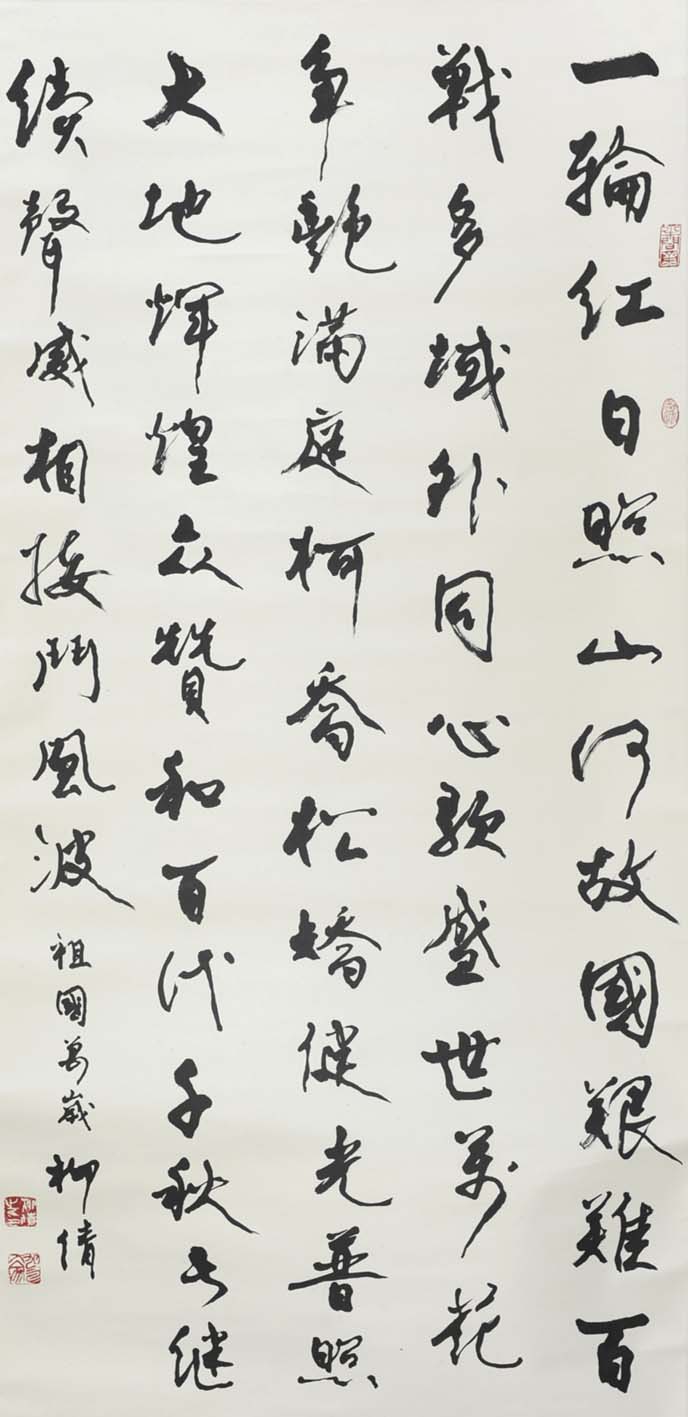 一輪红日照山河故國艱難百
戰多域外同心歌盛世萬花
争艷满庭柯喬松矯健光普照
大地輝煌众贊和百代千秋长继
續聲威相接鬥風波
祖國萬歲 柳倩